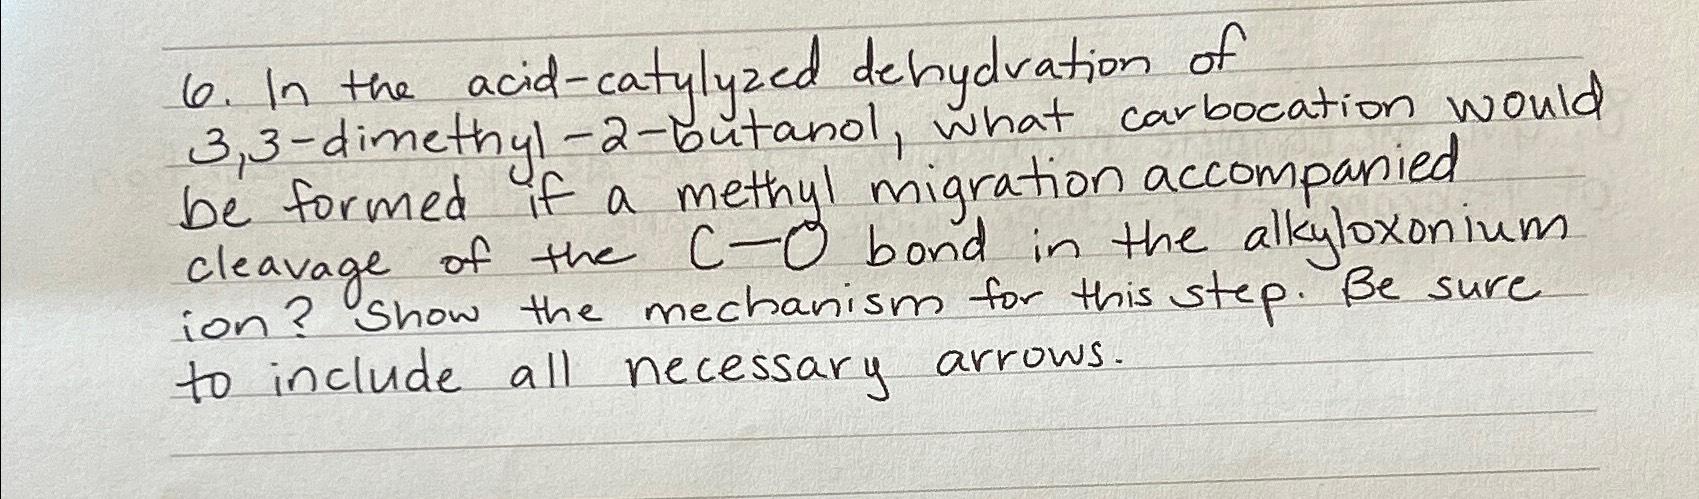 6. In the acid-catylyzed dehydration of
3,3-dimethyl-2-butanol, what carbocation would
be formed if a methyl migration accompanied
cleavage of the C-O bond in the alkyloxonium
ion? Show the mechanism for this step. Be sure
to include all necessary arrows.